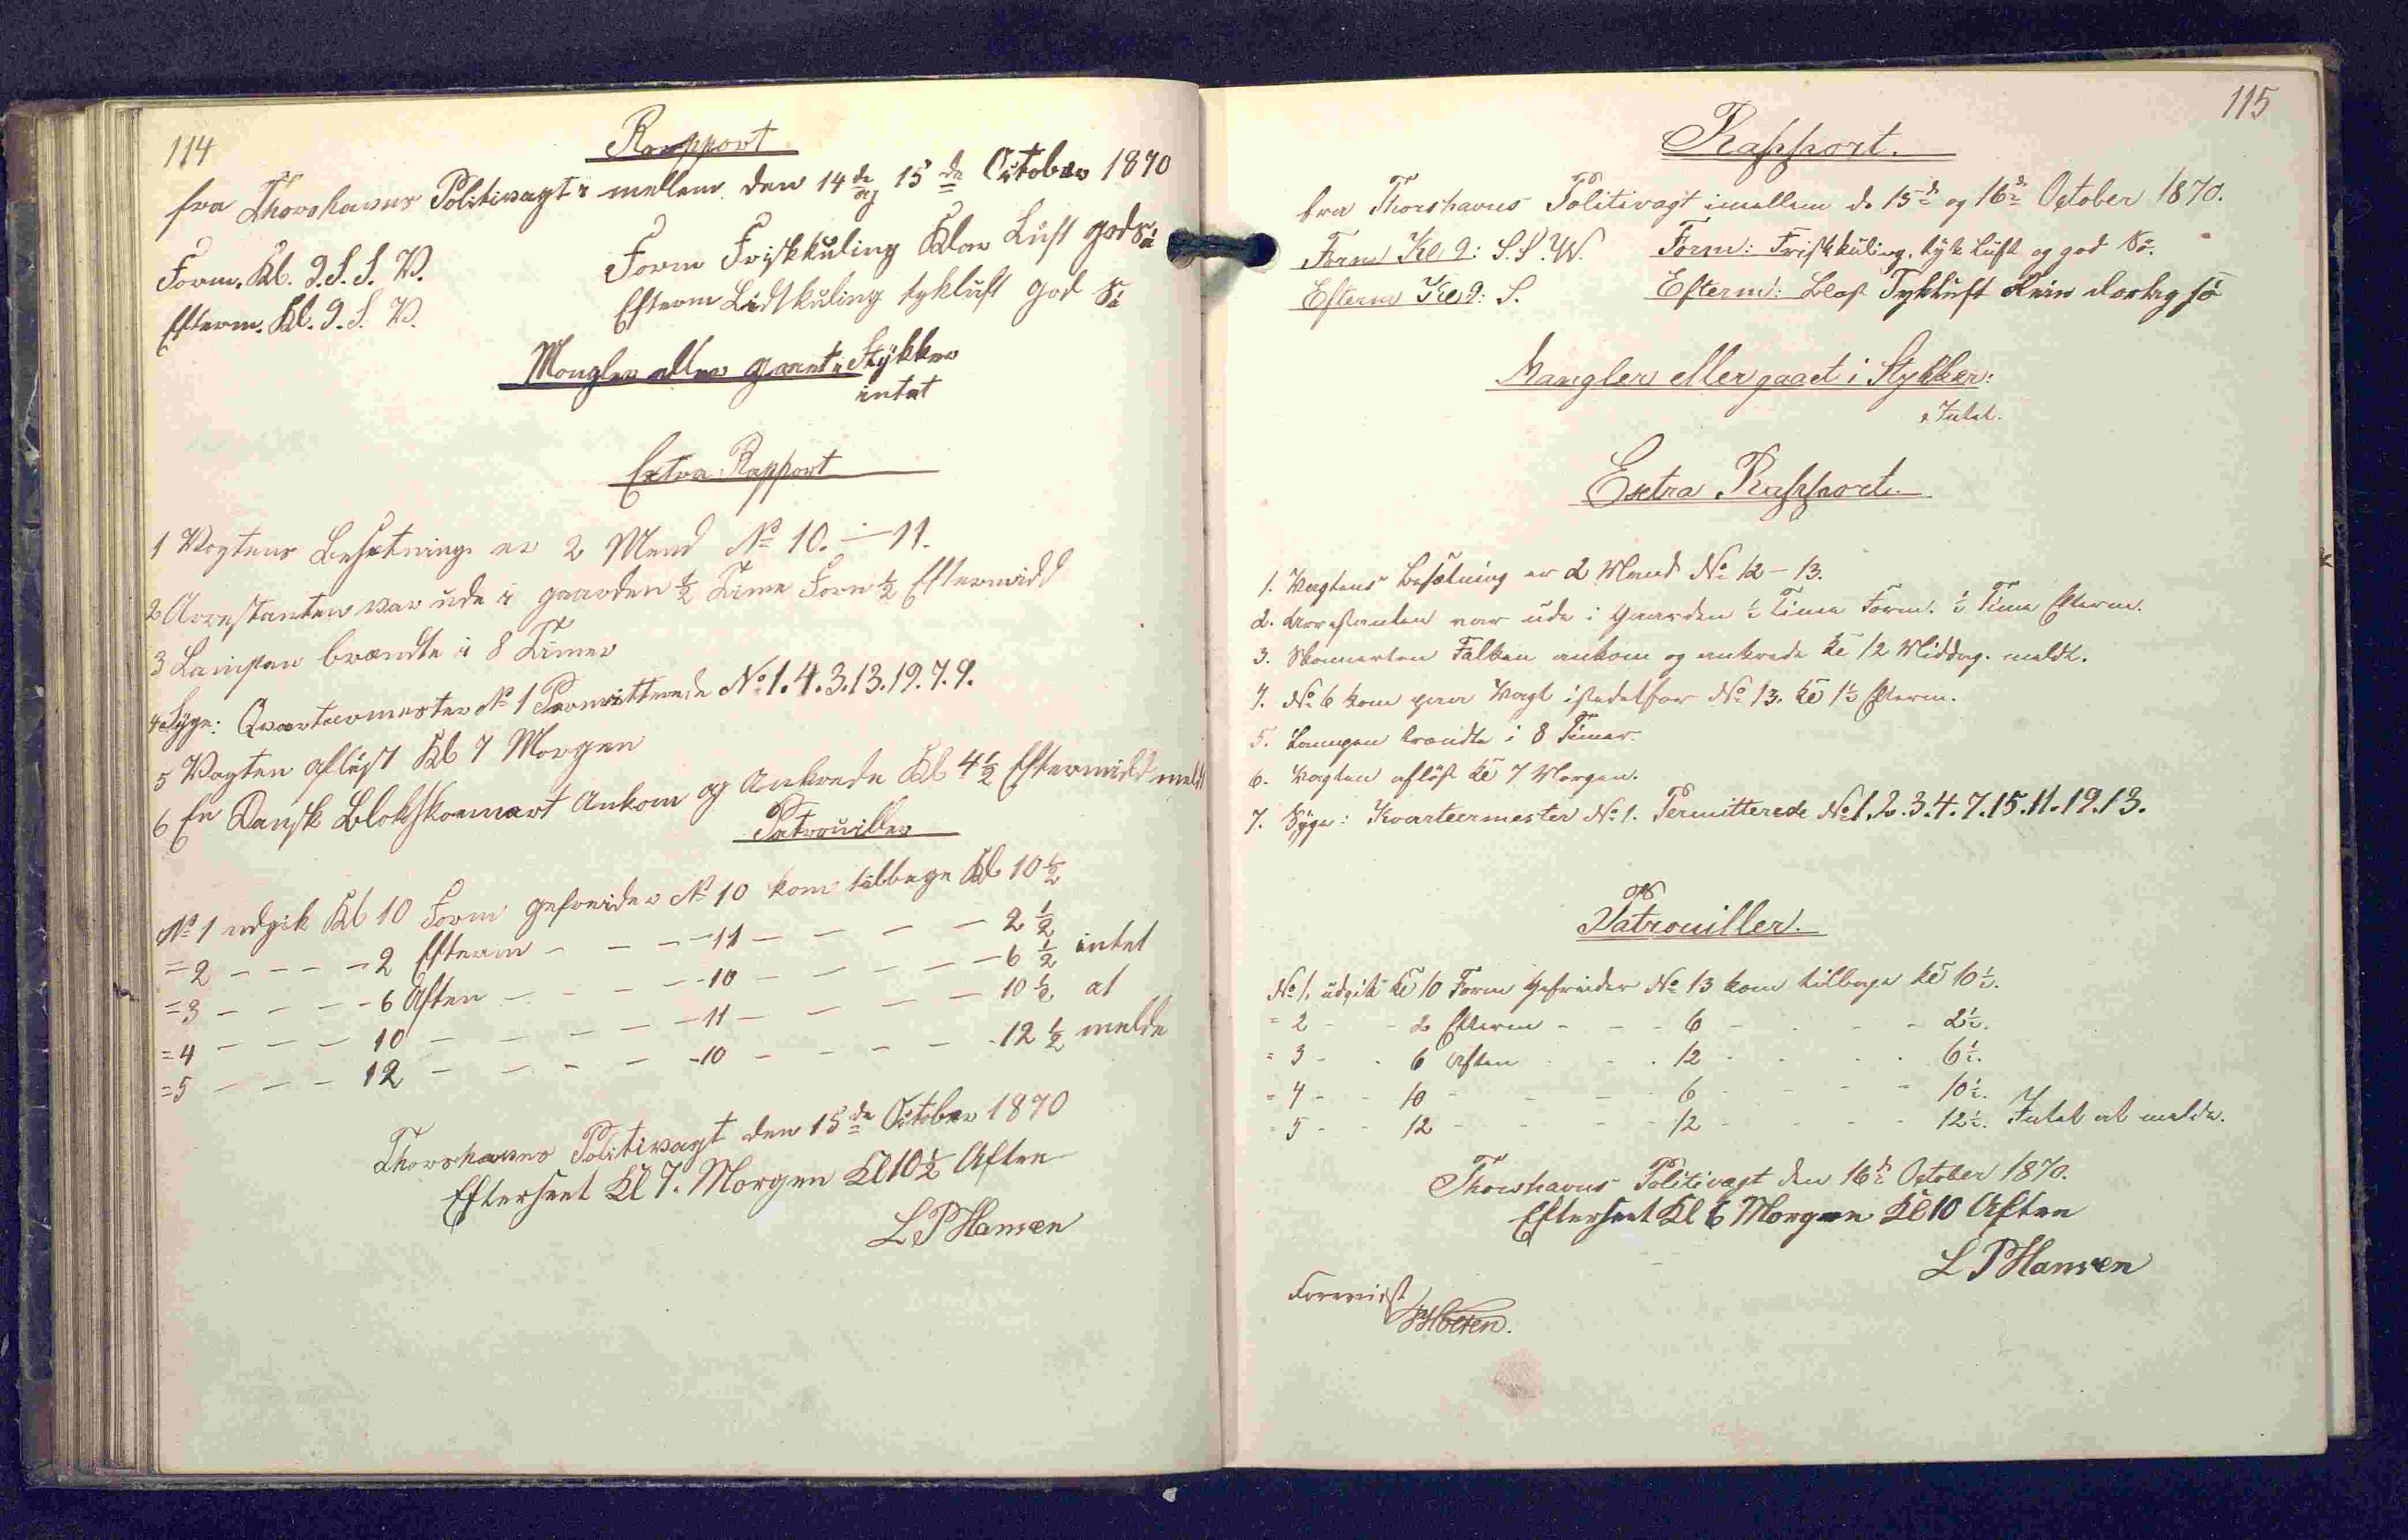 114
Rapport
fra Thorshavns Politivagt i mellem den 14de og 15de October 1870
Form. Kl. 9. S. S. V. Form Friskkuling Klar Luft god Sö
Efterm. Kl. 9. S. V. Efterm Lidtkuling tykluft god Sö
Mangler eller gaaet i Stykker
intet
Extra Rapport
1 Vagtens Besætning er 2 Mend No 10. - 11.
2 Arrestanten var ude i gaarden ½ Time Form ½ Eftermidd
3 Lampen brændte i 8 Timer
4 Syge: Qvarteermester No 1 Permitterede No 1. 4. 3. 13. 19. 7. 9.
5 Vagten aflöst Kl 7 Morgen
6 En Dansk Blokskonnart Ankom og Ankrede Kl 4½ Eftermidd meldt
Patrouiller
No 1 udgik Kl 10 Form gefreider No 10 kom tilbage Kl 10½
= 2 - - - - 2 Efterm - - - - 11 - - - - 2½
= 3 - - - - 6 Aften - - - - 10 - - - - - 6½ intet
= 4 - - - 10 - - - - - 11 - - - - 10½ at
= 5 - - - 12 - - - - - 10 - - - - - 12½ melde
Thorshavns Politivagt den 15de October 1870
Efterseet Kl 7. Morgen Kl 10½ Aften
L P Hansen
115
Rapport.
fra Thorshavns Politivagt imellem d. 15de og 16de October 1870.
Form Kl 9: S. S. W. Form: Friskkuling, tyk Luft og god Sö.
Efterm Kl 9: S. Efterm: Blæst Tykluft Rein sö
Mangler eller gaaet i Stykker:
Intet.
Extra Rapport.
1. Vagtens Besætning er 2 Mand No 12 - 13.
2. Arrestanten var ude i Gaarden ½ Time Form. ½ Time Efterm.
3. Skonnerten Falken ankom og ankrede Kl 12 Middag. meldt.
4. No 6 kom paa Vagt istedetfor No 13. Kl 1½ Efterm.
5. Lampen brændte i 8 Timer.
6. Vagten aflöst Kl 7 Morgen.
7. Syge: Kvarteermester No 1. Permitterede No 1. 2. 3. 4. 7. 15. 11. 19. 13.
Patrouiller.
No 1. udgik Kl 10 Form Gefreider No 13 kom tilbage Kl 10½.
= 2 - - 2 Efterm - - - 6 - - - - 2½.
= 3 - - 6 Aften - - - 12 - - - - 6½.
= 4 - - 10 - - - - 6 - - - - 10½.
= 5 - - 12 - - - - 12 - - - - 12½. Intet at melde.
Thorshavns Politivagt den 16de October 1870.
Efterseet Kl 6 Morgen Kl 10 Aften
L P Hansen
Foreviist